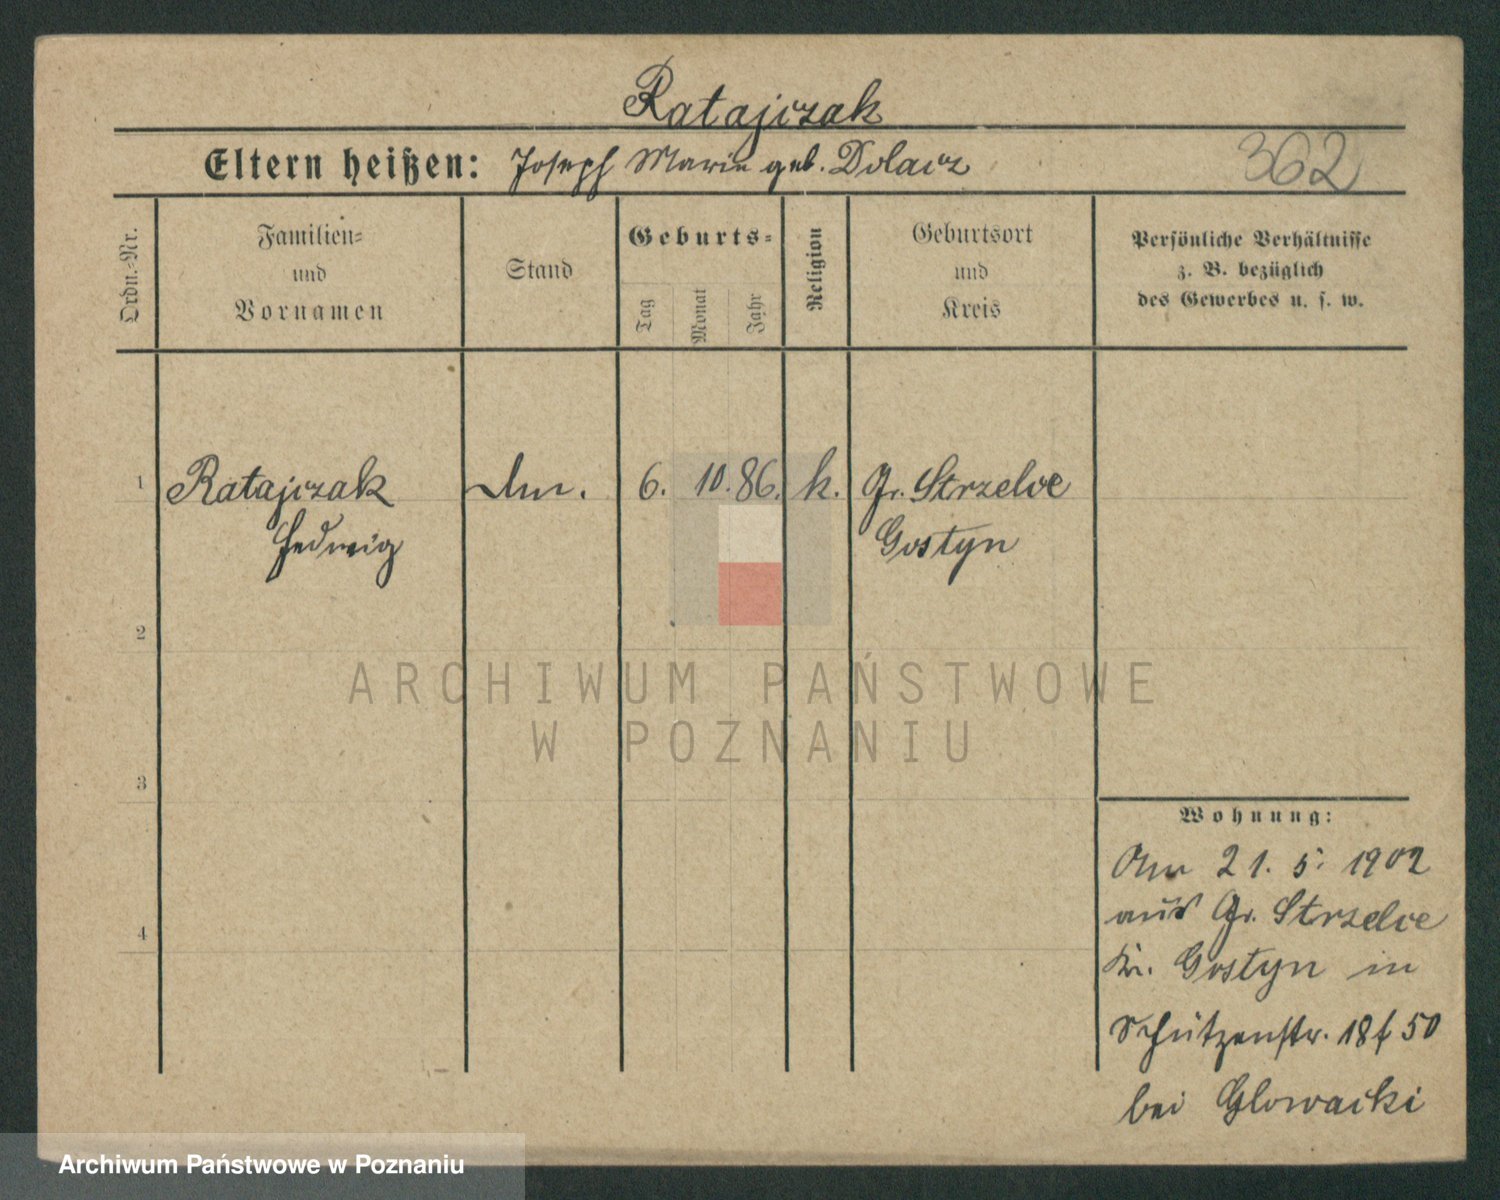 Ratajczak
Eltern heißen: Joseph Marie geb. Dolacz
362
Ordn.-Nr.
Familien-
und
Vornamen
Stand
Geburts-
Tag
Monat
Jahr
Religion
Geburtsort
und
Kreis
Persönliche Verhältnisse
z. B. bezüglich
des Gewerbes u. s. w.
1 Ratajczak 6. 10. 86. k. Gr. Strzelce
Hedwig Gostyn
2
ARCHIWUM PAŃSTWOWE
W POZNANIU
3
4
Wohnung:
Am 21. 5. 1902
aus Gr. Strzelce
Kr. Gostyn in
Schützenstr. 18 50
bei Glowacki
Archiwum Państwowe w Poznaniu